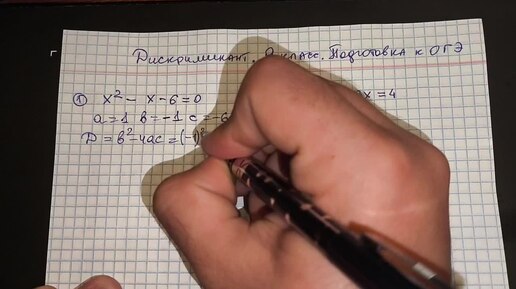 Дискриминант. класс. Подготовка к ОГЭ
① x² - x - 6 = 0
x = 4
a = 1 b = -1 c = -6
D = b² - 4ac = (-1)²